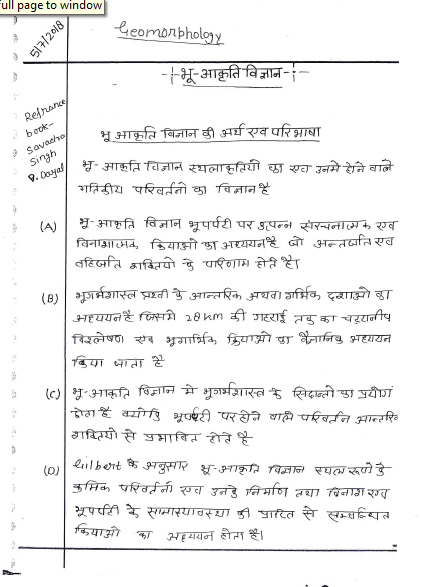 full page to window
5/7/2018
Geomorphology
-:- भू-आकृति विज्ञान -:-
Refrance
book-
Savachra
Singh
P. Dayal
भू आकृति विज्ञान की अर्थ एंव परिभाषा
भू-आकृति विज्ञान स्थलाकृतियो का एंव उनमे होने वाले
गतिकीय परिवर्तनो का विज्ञान है
(A) भू-आकृति विज्ञान भूपर्पटी पर उत्पन्न संरचनात्मक एंव
विनाशात्मक क्रियाओं का अध्ययन है जो अन्तर्जात एंव
वहिर्जात शक्तियो के परिणाम होते है।
(B) भूगर्भशास्त्र प्रथ्वी के आन्तरिक अथवा गर्भिक दशाओ का
अध्ययन है जिसमे 28 km की गहराई तक का चट्टानीय
विश्लेषण एंव भूगार्भिक क्रियाओ का वैज्ञानिक अध्ययन
किया जाता है
(C) भू-आकृति विज्ञान मे भूगर्भशास्त्र के सिद्धान्तो का प्रयोग
होता है क्योकि भूपर्पटी पर होने वाले परिवर्तन आन्तरिक
शक्तियो से प्रभावित होते है
(D) Gilbert के अनुसार भू-आकृति विज्ञान स्थल रूपो के
क्रमिक परिवर्तनो एंव उनके निर्माण तथा विनाश एंव
भूपर्पटी के साम्यावस्था की प्राप्ति से सम्बन्धित
क्रियाओ का अध्ययन होता है।